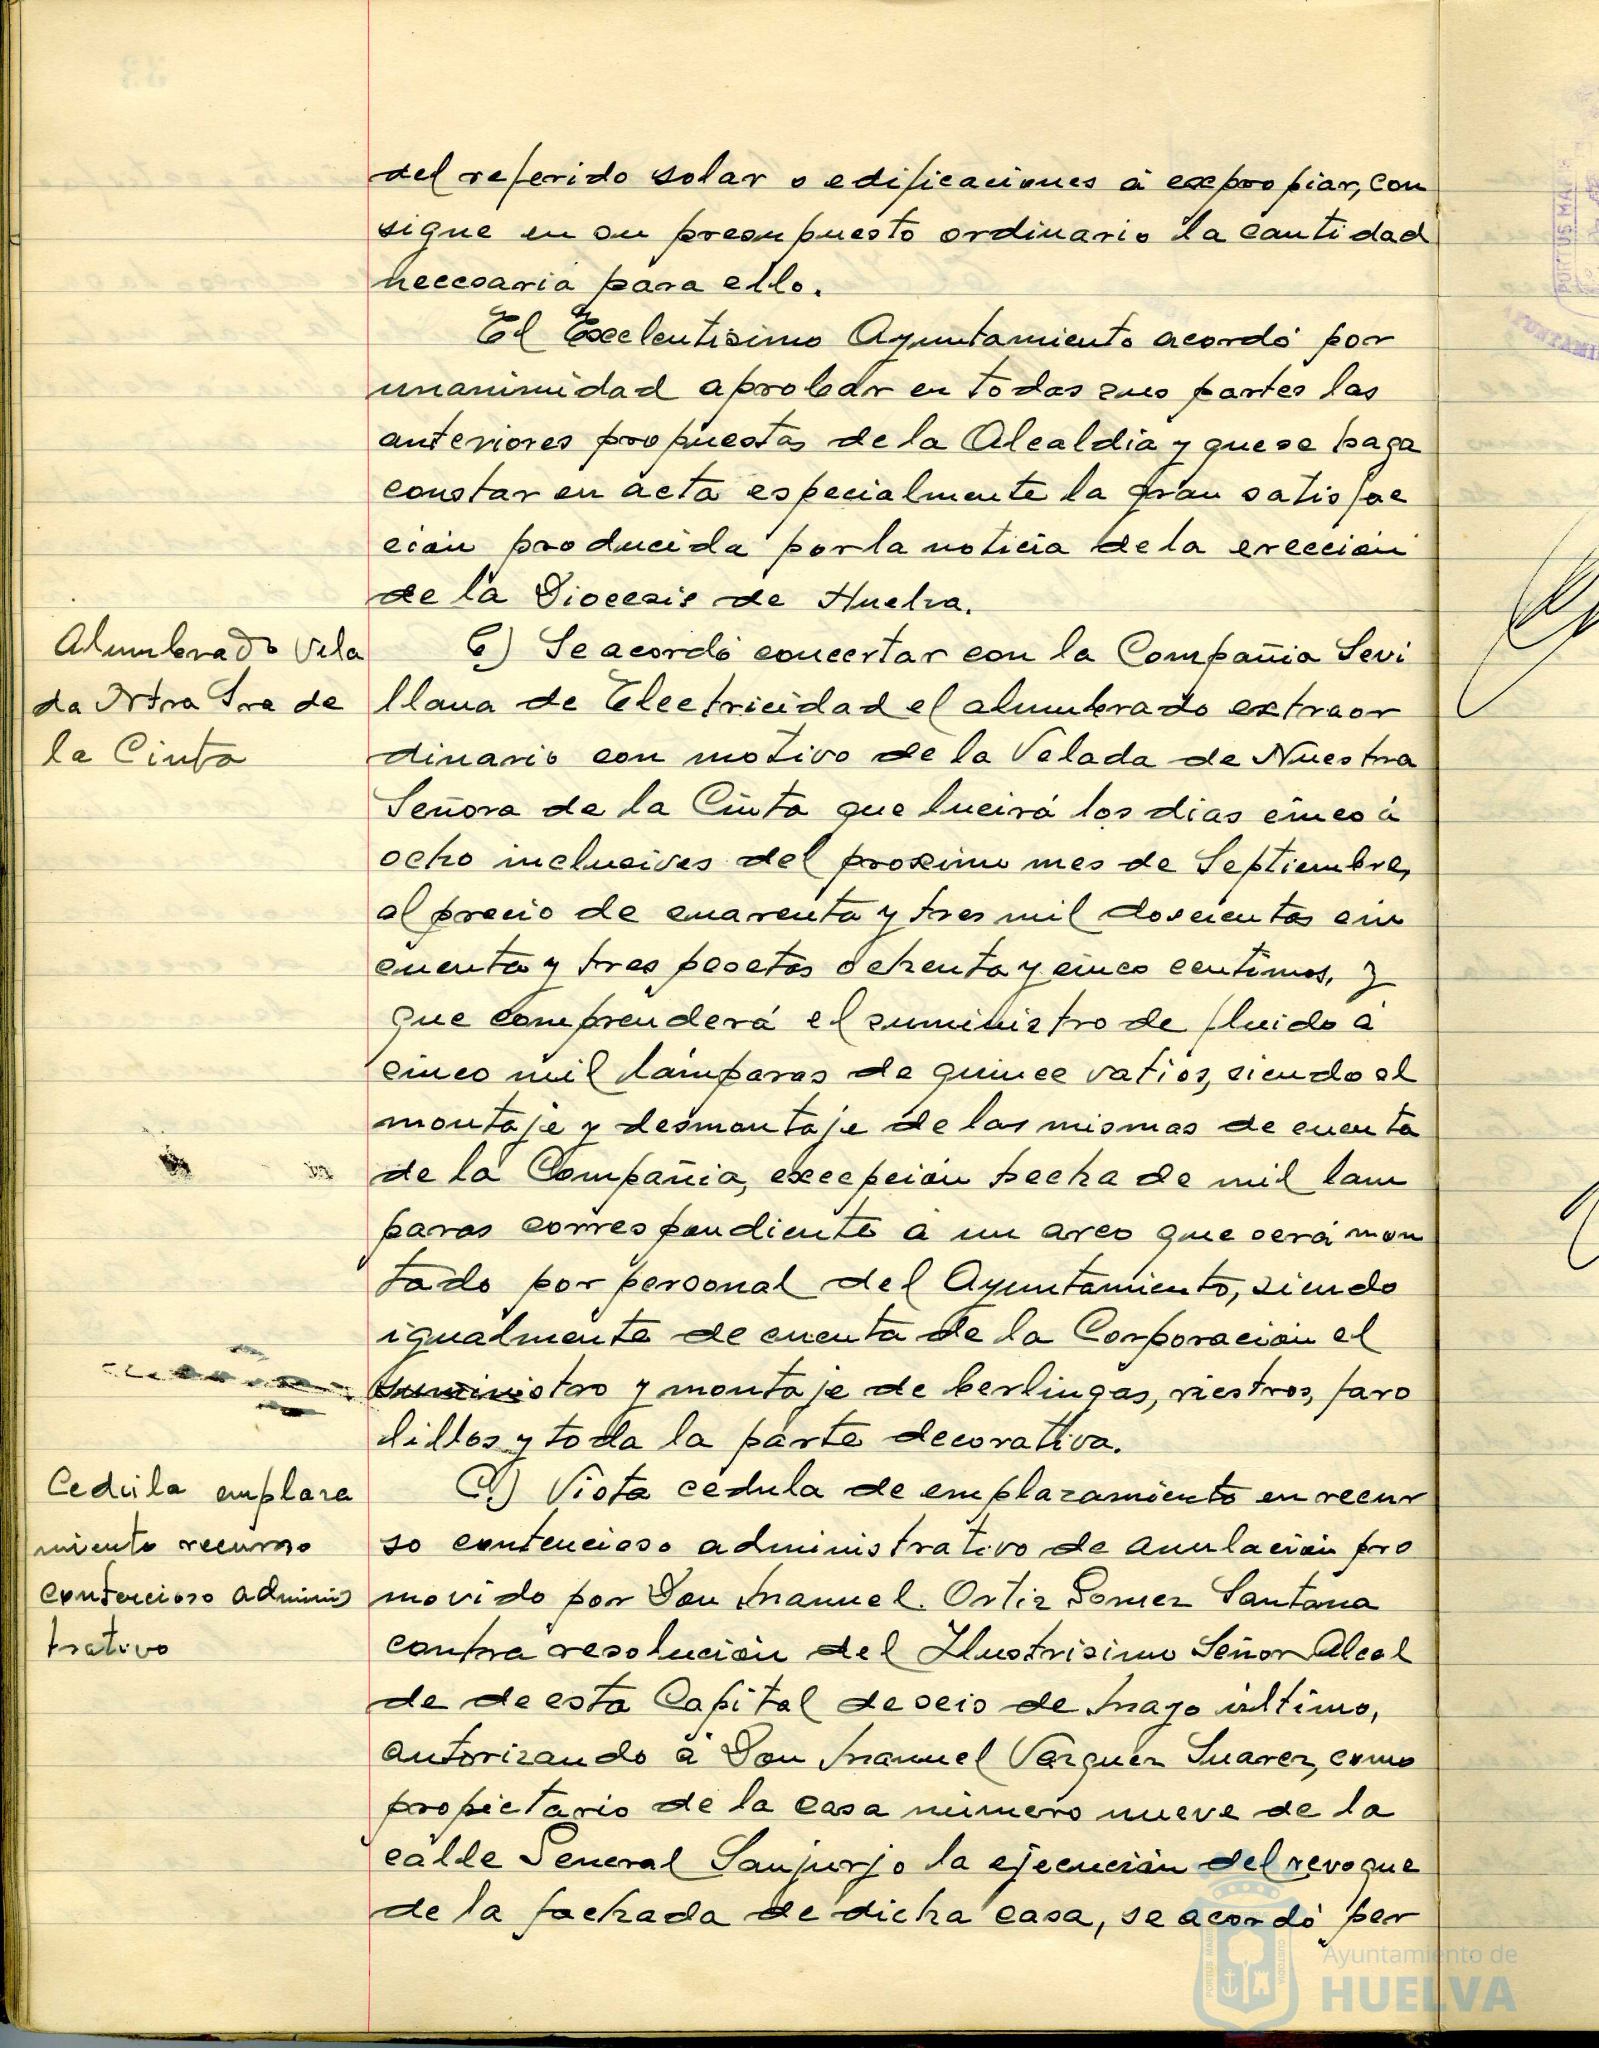 del referido solar o edificaciones á expropiar, con
sigue en su presupuesto ordinario la cantidad
necesaria para ello.
El Excelentisimo Ayuntamiento acordó por
unanimidad aprobar en todas sus partes las
anteriores propuestas de la Alcaldia y que se haga
constar en acta especialmente la gran satisfac
ción producida por la noticia de la erección
de la Diocesis de Huelva.
Alumbrado Vela
da Ntra Sra de
la Cinta
b) Se acordó concertar con la Compañia Sevi
llana de Electricidad el alumbrado extraor
dinario con motivo de la Velada de Nuestra
Señora de la Cinta que lucirá los dias cinco á
ocho inclusives del proximo mes de Septiembre,
al precio de cuarenta y tres mil doscientas cin
cuenta y tres pesetas ochenta y cinco centimos, y
que comprenderá el suministro de fluido á
cinco mil lámparas de quince vatios, siendo el
montaje y desmontaje de las mismas de cuenta
de la Compañia, excepción hecha de mil lam
paras correspondiente á un arco que será mon
tado por personal del Ayuntamiento, siendo
igualmente de cuenta de la Corporación el
suministro y montaje de berlingas, riestros, faro
lillos y toda la parte decorativa.
Cedula emplaza
miento recurso
contencioso adminis
trativo
C) Vista cédula de emplazamiento en recur
so contencioso administrativo de anulación pro
movido por Don Manuel Ortiz Gomez Santana
contra resolución del Ilustrisimo Señor Alcal
de de esta Capital de seis de Mayo último,
autorizando á Don Manuel Vazquez Suarez, como
propietario de la casa número nueve de la
calle General Sanjurjo la ejecución del revoque
de la fachada de dicha casa, se acordó per
Ayuntamiento de
HUELVA